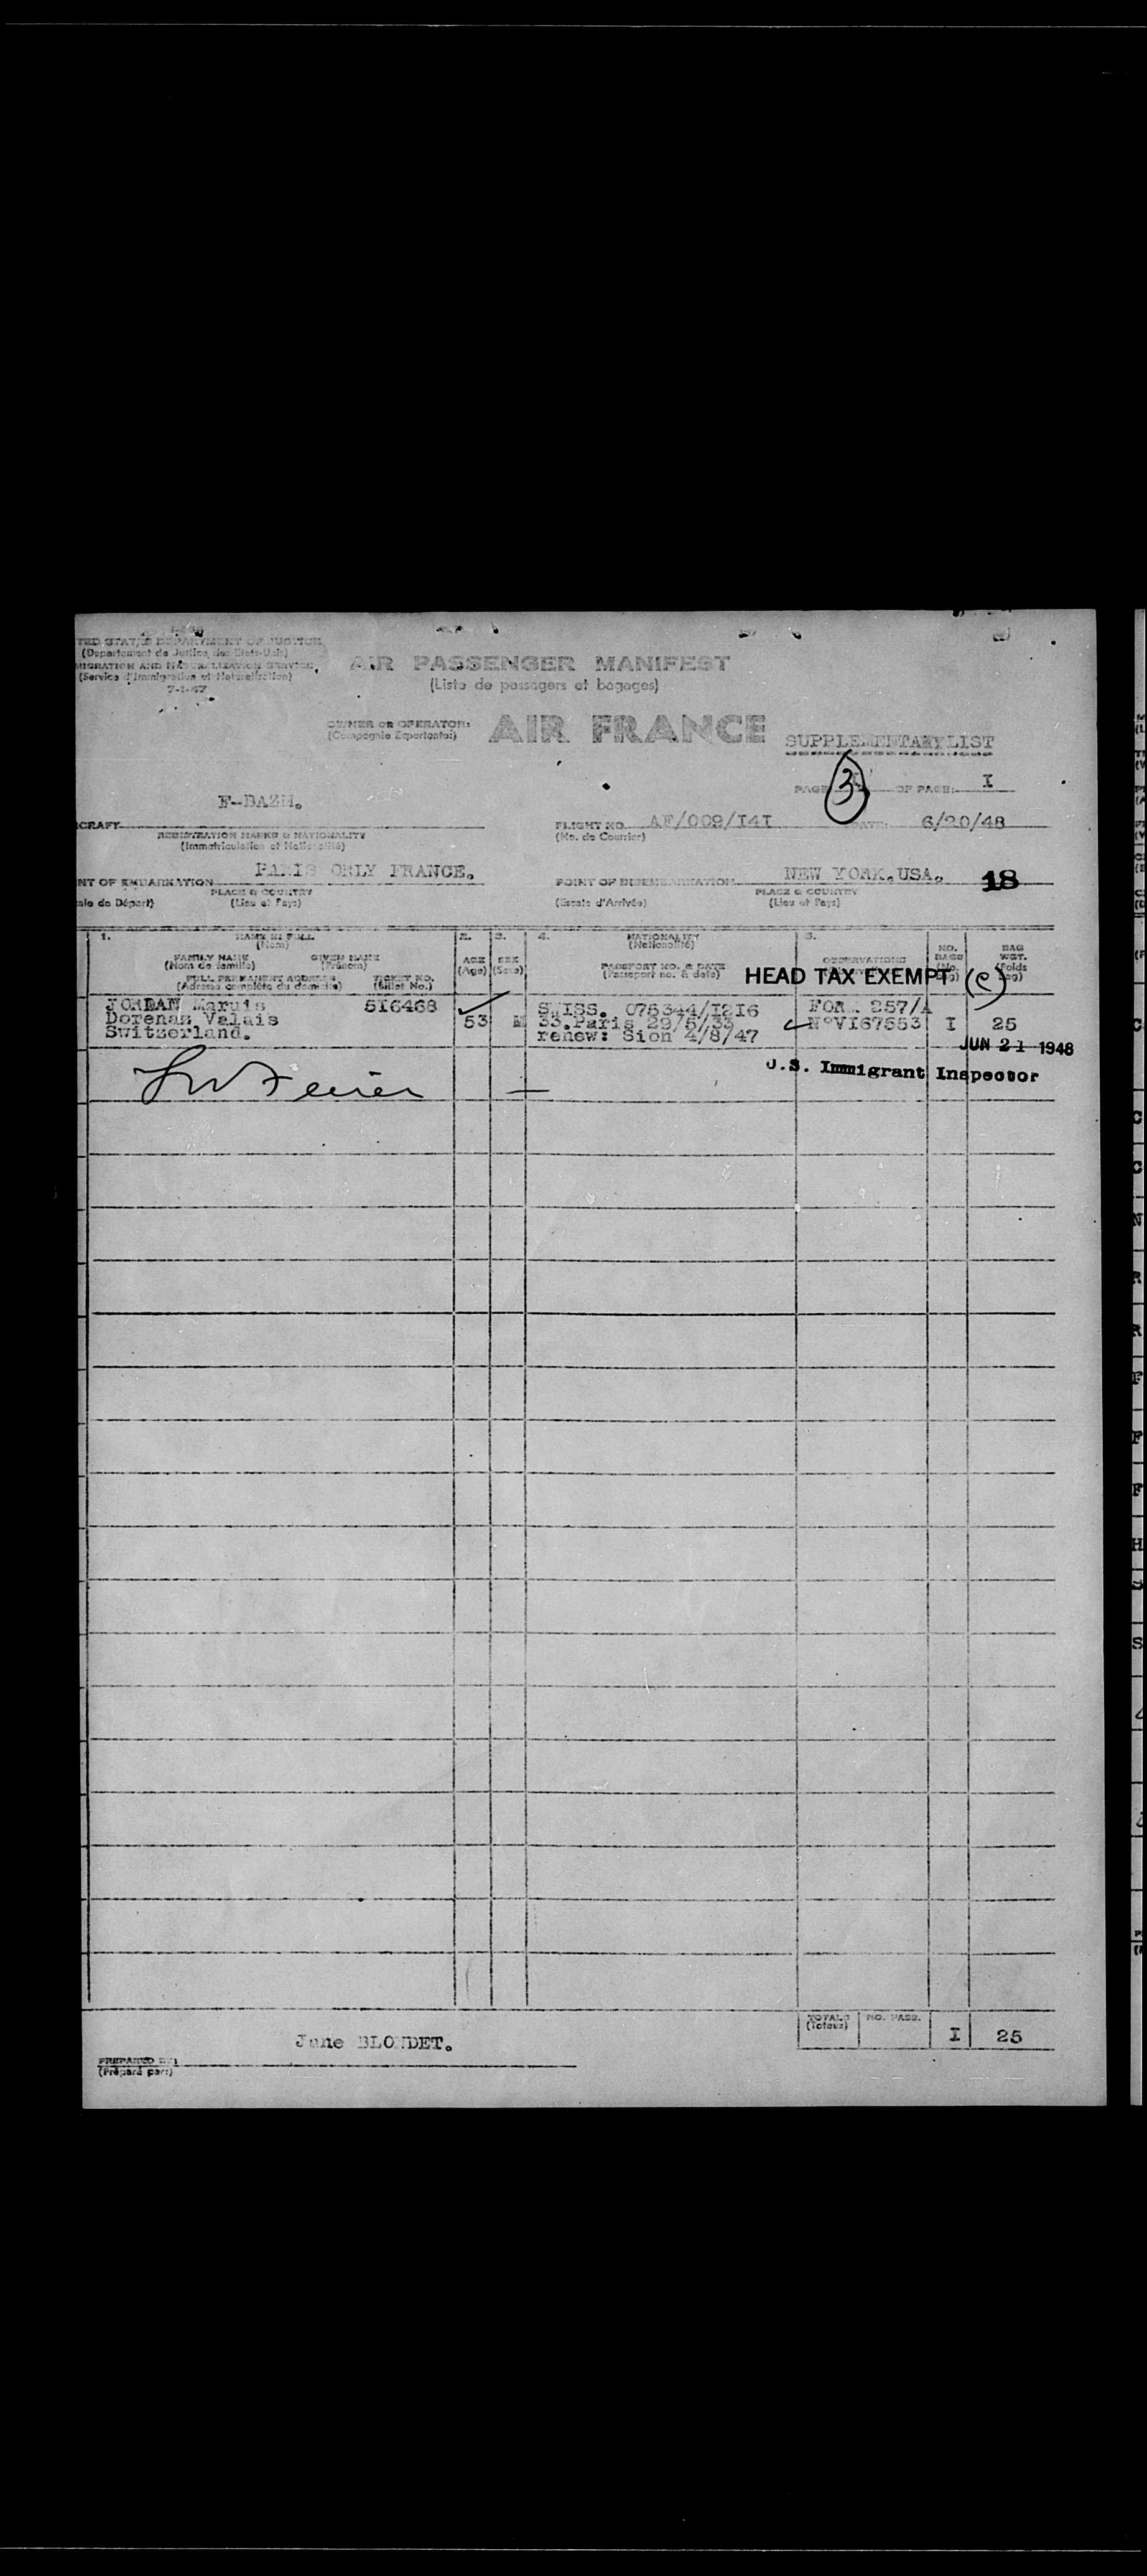 TED STATES DEPARTMENT OF JUSTICE
(Departement de Justice des Etats-Unis)
MIGRATION AND NATURALIZATION SERVICE
(Service d'Immigration et Naturalisation)
7-1-47
AIR PASSENGER MANIFEST
(Liste de passagers et bagages)
OWNER OR OPERATOR:
(Compagnie Exportante:)
AIR FRANCE
SUPPLEMENTARY LIST
PAGE 3 OF PAGE: I
CRAFT
REGISTRATION MARKS & NATIONALITY
(Immatriculation et Nationalité)
FLIGHT NO. AF/009/I4I DATE: 6/20/48
(No. de Courrier)
NT OF EMBARKATION PARIS ORLY FRANCE.
PLACE & COUNTRY
ale de Départ) (Lieu et Pays)
POINT OF DISEMBARKATION NEW YORK.USA. 18
PLACE & COUNTRY
(Escale d'Arrivée) (Lieu et Pays)
1. NAME IN FULL
(Nom)
FAMILY NAME GIVEN NAME
(Nom de famille) (Prénom)
FULL PERMANENT ADDRESS TICKET NO.
(Adresse complète du domicile) (Billet No.)
2. AGE
(Age)
3. SEX
(Sexe)
4. NATIONALITY
(Nationalité)
PASSPORT NO. & DATE
(Passeport no. & date)
5. OBSERVATIONS
NO. BAGS
BAG WGT.
(Poids
HEAD TAX EXEMPT (c)
JORDAN Maruis 5I6468
Dorenaz Valais
Switzerland.
53 M
SWISS. 075344/I2I6
33.Paris 29/5/33
renew: Sion 4/8/47
FOR. 257/A
N°VI67553 I 25
JUN 21 1948
U.S. Immigrant Inspector
TOTALS
(Totaux)
NO. PASS.
I 25
Jane BLONDET.
PREPARED BY:
(Préparé par:)